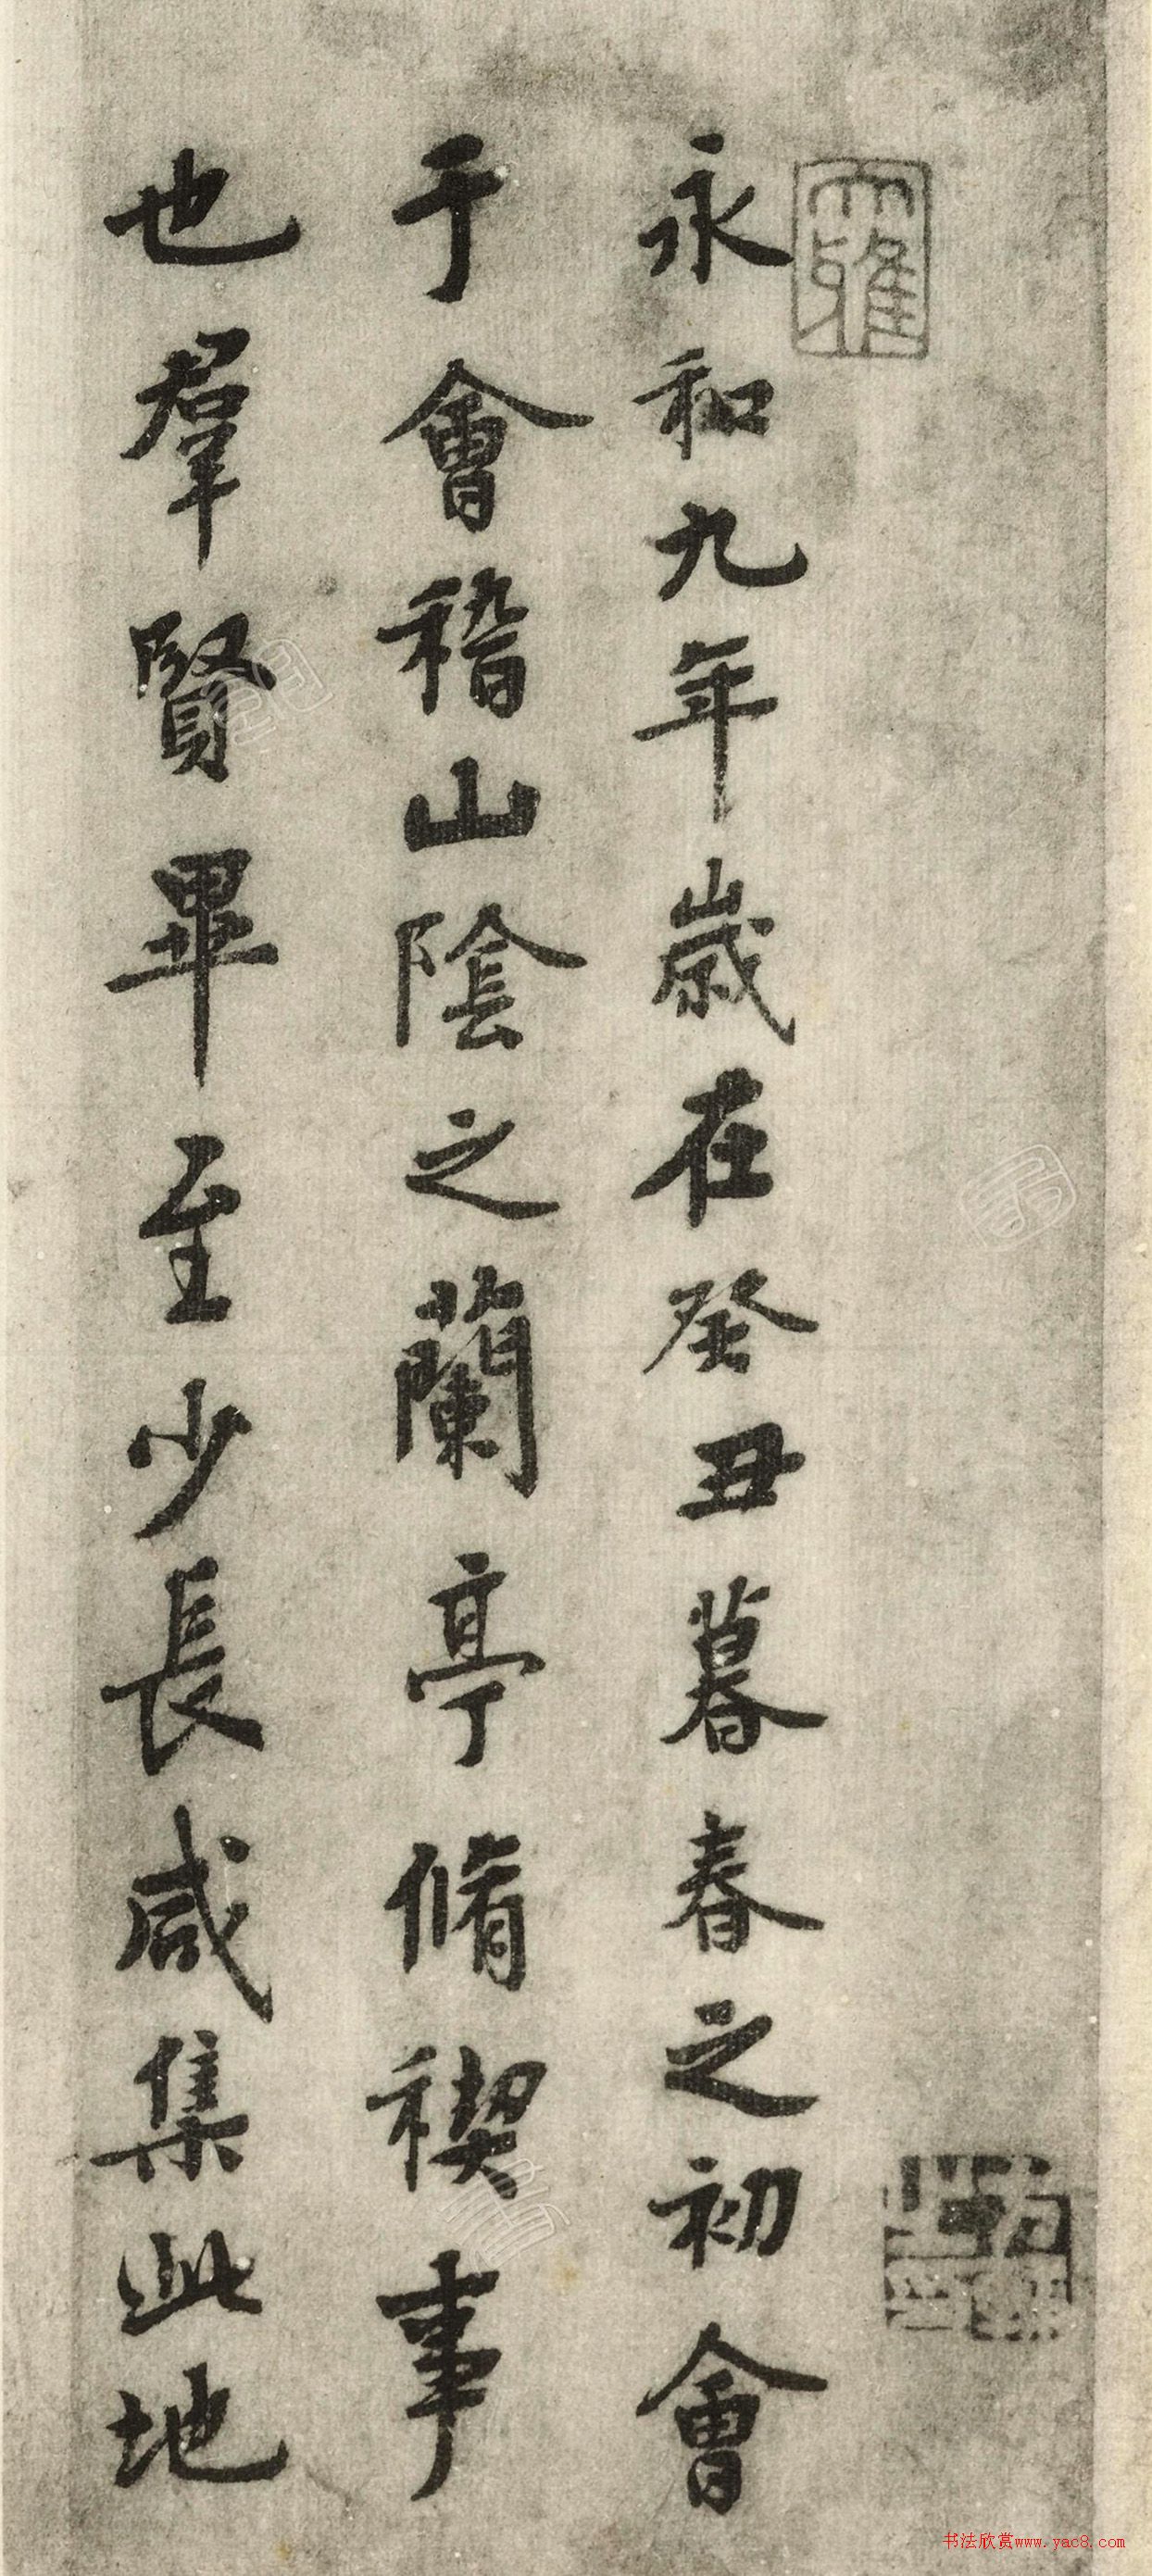 永和九年歲在癸丑暮春之初會
于會稽山陰之蘭亭脩禊事
也羣賢畢至少長咸集此地
大雅
书法欣赏www.yac8.com